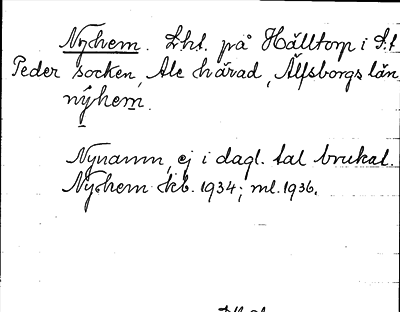 Nyhem. Lht. på Hälltorp i S:t
Peder socken, Ale härad, Älfsborgs län
nýhem.
Nynamn, ej i dagl. tal brukat.
Nyhem kb. 1934; ml. 1936.